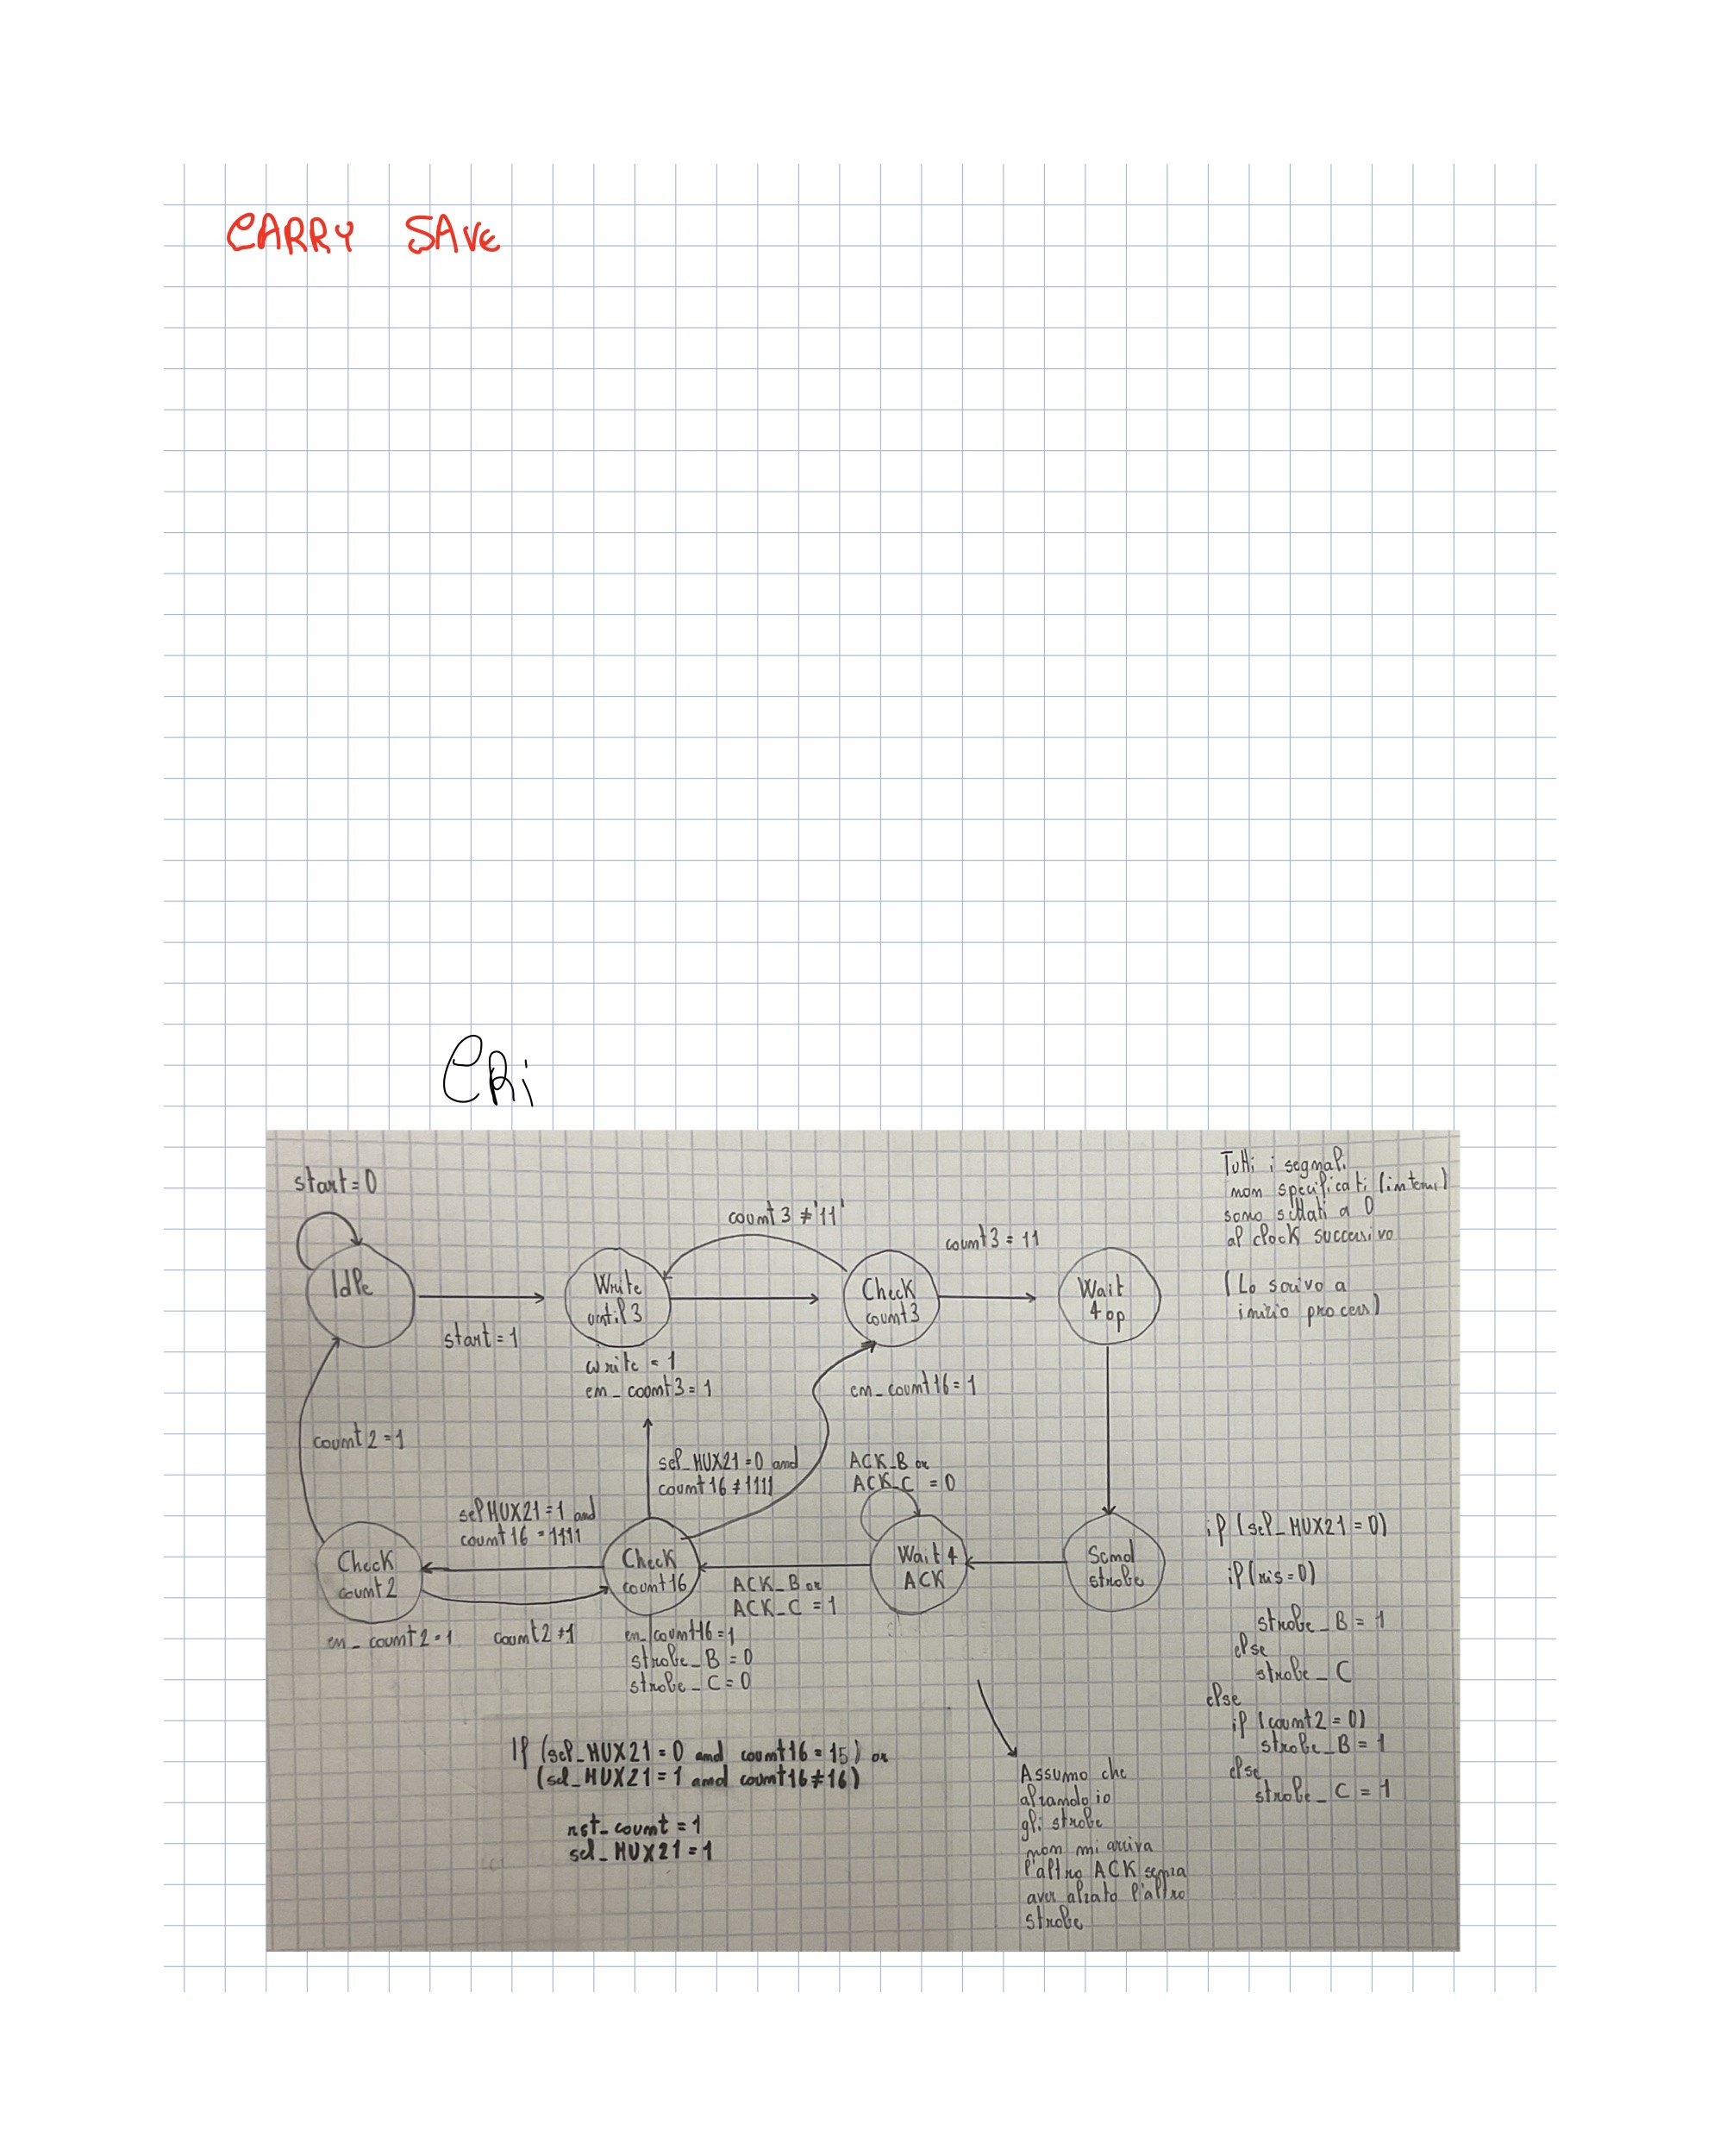 CARRY SAVE
CRi
start = 0
Idle
start = 1
Write
until 3
write = 1
en_count3 = 1
count3 ≠ '11'
Check
count3
count3 = 11
Wait
4 op
Tutti i segnali
non specificati (interni)
sono settati a 0
al clock successivo
(Lo scrivo a
inizio process)
en_count16 = 1
count2 = 1
sel_MUX21 = 0 and
count16 ≠ 1111
ACK_B or
ACK_C = 0
selMUX21 = 1 and
count16 = 1111
Check
count2
en_count2 = 1
count2 ≠ 1
Check
count16
en_count16 = 1
strobe_B = 0
strobe_C = 0
ACK_B or
ACK_C = 1
Wait 4
ACK
Send
strobe
if (sel_MUX21 = 0)
if (ris = 0)
strobe_B = 1
else
strobe_C
else
if (count2 = 0)
strobe_B = 1
else
strobe_C = 1
If (sel_MUX21 = 0 and count16 = 15) or
(sel_MUX21 = 1 and count16 ≠ 16)
rst_count = 1
sel_MUX21 = 1
Assumo che
alzando io
gli strobe
non mi arriva
l'altro ACK senza
aver alzato l'altro
strobe